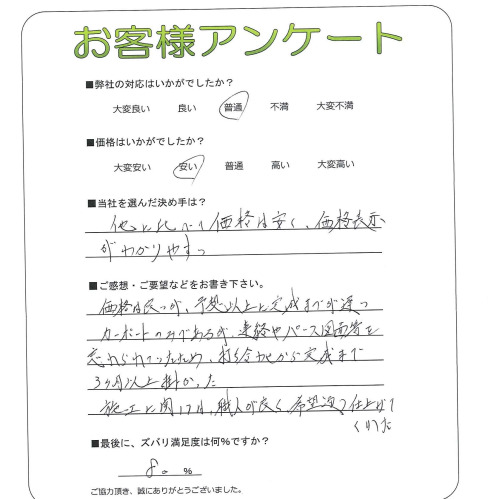 お客様アンケート
■弊社の対応はいかがでしたか？
大変良い 良い 普通 不満 大変不満
■価格はいかがでしたか？
大変安い 安い 普通 高い 大変高い
■当社を選んだ決め手は？
他に比べて価格は安く、価格表示
がわかりやすい
■ご感想・ご要望などをお書き下さい。
価格は良いが、予想以上に完成までが遅い
カーポートのみであるが、連絡やパース図面等を
忘れられていたため、打ち合わせから完成まで
3ヶ月以上掛かった
施工に関しては、職人が良く、希望通り仕上げて
くれた
■最後に、ズバリ満足度は何％ですか？
80 ％
ご協力頂き、誠にありがとうございました。